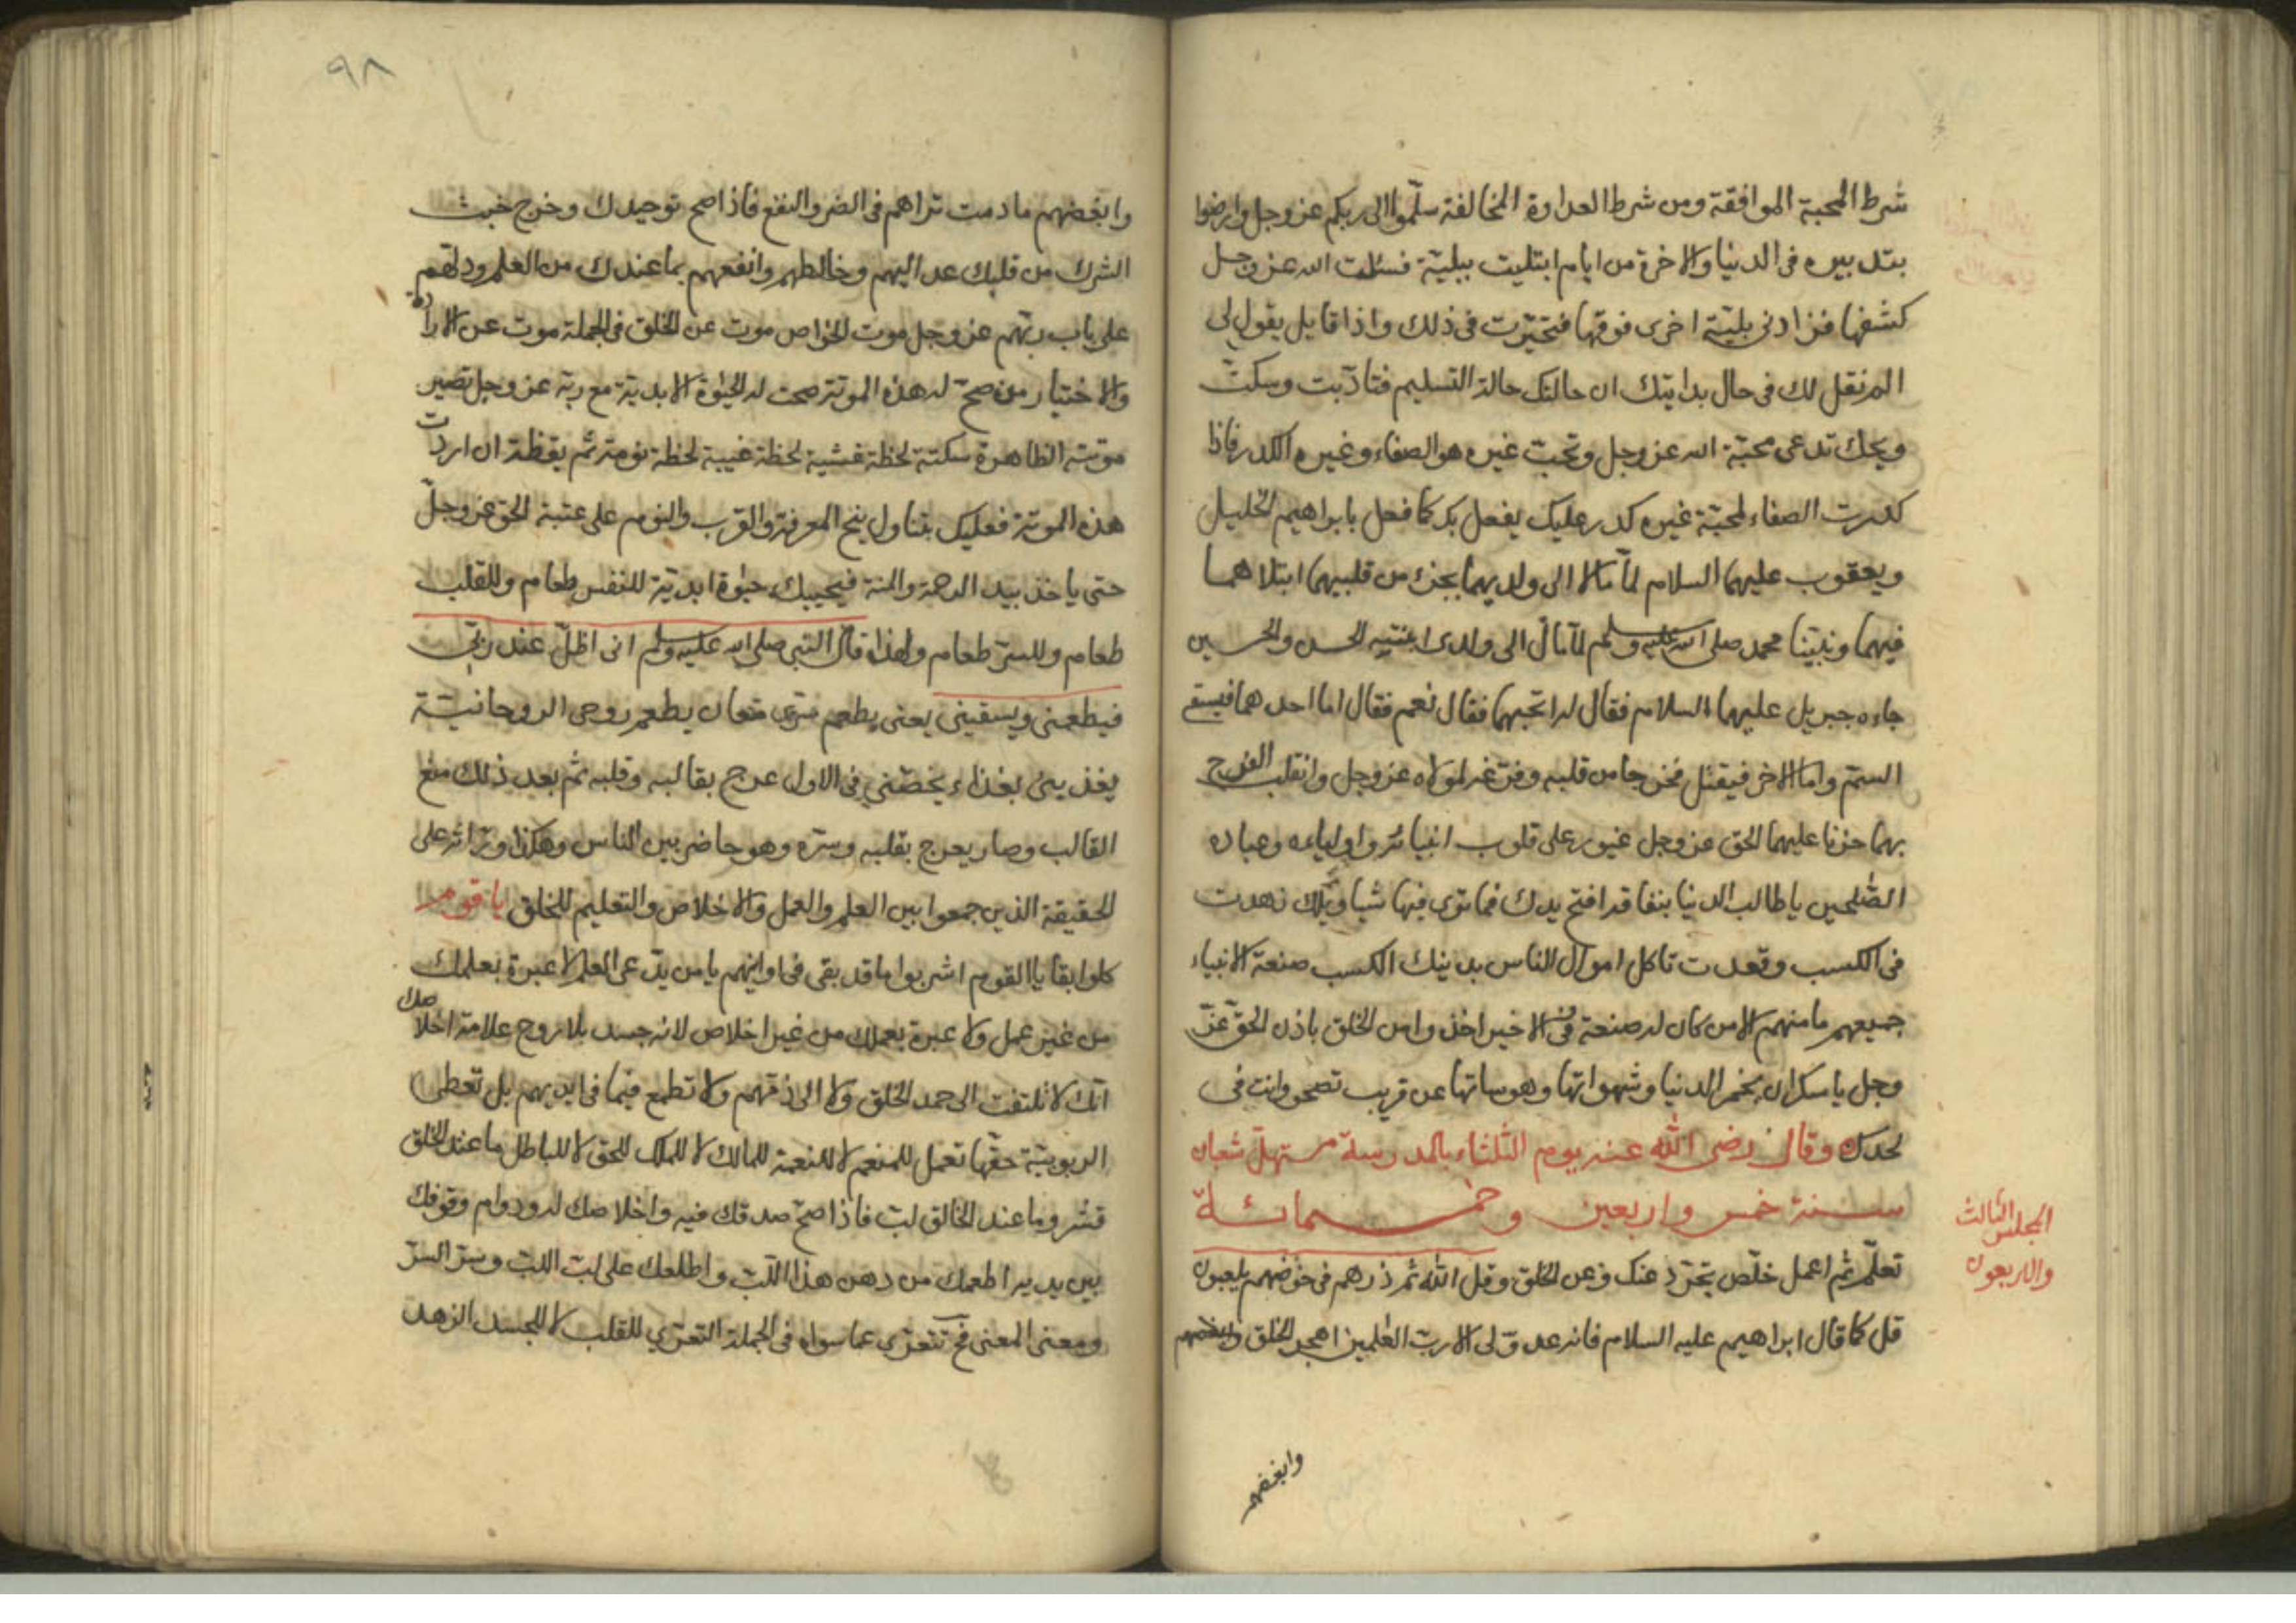 شرط المحبة الموافقة ومن شرط العداوة المخالفة سلّموا الى ربكم عز وجل وارضوا
بتدبيره فى الدنيا والاخرة من ايام ابتليت ببليّة فسئلت الله عز وجل
كشفها فزادنى بليّة اخرى فوقها فتحيّرت فى ذلك واذا قايل يقول لى
الم نقل لك فى حال بدايتك ان حالتك حالة التسليم فتادّبت وسكتّ
ويحك تدعى محبّة الله عز وجل وتحبّ غيره هو الصفاء وغيره الكدر فاذا
كدرت الصفاء لمحبّة غيره كدر عليك يفعل بك كما فعل بابراهيم الخليل
ويعقوب عليهما السلام لمّا مالا الى ولديهما بجزء من قلبيهما ابتلاهما
فيهما ونبيّنا محمد صلى الله عليه وسلم لمّا مال الى ولدى ابنتيه الحسن والحسين
جاءه جبريل عليهما السلام فقال له اتحبهما فقال نعم فقال اما احدهما فيسقى
السمّ واما الاخر فيقتل فخرجا من قلبه وفرّغه لمولاه عز وجل وانقلب الفرح
بهما حزنا عليهما الحق عز وجل غيور على قلوب انبيائه واوليائه وعباده
الصّلحين يا طالب الدنيا بنفاقه افتح يدك فما ترى فيها شيا ويلك زهدت
فى الكسب وقعدت تاكل اموال الناس بدينك الكسب صنعة الانبياء
جميعهم ما منهم الا من كان له صنعة وفى الاخير اخذوا من الخلق باذن الحقّ عزّ
وجل يا سكران بخمر الدنيا وشهواتها وهوساتها عن قريب تصحو وانت فى
لحدك وقال رضى الله عنه يوم الثلثاء بالمدرسة مستهلّ شعبان
سنة خمس واربعين وخمسمائة
المجلس الثالث
والاربعون
تعلّم ثم اعمل خلّص تجرّد عنك وعن الخلق وقل الله ثم ذرهم فى خوضهم يلعبون
قل كما قال ابراهيم عليه السلام فانه عدوّ لى الا ربّ العٰلمين اهجر الخلق وابغضهم
وابغضهم
٩٨
وابغضهم ما دمت تراهم فى الضر والنفع فاذا صح توحيدك وخرج خبث
الشرك من قلبك عد اليهم وخالطهم وانفعهم بما عندك من العلم ودلّهم
على باب ربّهم عز وجل موت الخواص موت عن الخلق فى الجملة موت عن الارادة
والاختيار من صحّ له هذه الموتة صحت له الحيوة الابدية مع ربه عز وجل تصير
موتته الظاهرة سكتة لحظة غشية لحظة غيبة لحظة نومة ثم يقظة ان اردت
هذه الموتة فعليك بتناول بنج المعرفة والقرب والنوم على عتبة الحق عز وجلّ
حتى ياخذ بيد الرحمة والمنة فيحييك حيٰوة ابديّة للنفس طعام وللقلب
طعام وللسرّ طعام ولهذا قال النبى صلى الله عليه وسلم انى اظلّ عند ربّى
فيطعمنى ويسقينى يعنى يطعم سرى معان يطعم روحى الروحانيّة
يغذينى بغذاء يخصّنى فى الاول عرج بقالبه وقلبه ثم بعد ذلك منع
القالب وصار يعرج بقلبه وسرّه وهو حاضر بين الناس وهكذا ورّاثه على
الحقيقة الذين جمعوا بين العلم والعمل والاخلاص والتعليم للخلق يا قوم
كلوا بقايا القوم اشربوا ما قد بقى فى اوانيهم يا من يدّعى العلم لا عبرة بعلمك
من غير عمل ولا عبرة بعملك من غير اخلاص لانه جسد بلا روح علامة اخلاصك
انّك لا تلتفت الى حمد الخلق ولا الى ذمّهم ولا تطمع فيما فى ايديهم بل تعطى
الربوبيّة حقّها تعمل للمنعم لا للنعمة للمالك لا للملك للحق لا للباطل ما عند الخلق
قشر وما عند الخالق لبّ فاذا صحّ صدقك فيه واخلاصك له ودوام وقوفك
بين يديه اطعمك من دهن هذا اللبّ واطلعك على لبّ اللبّ وسرّ السرّ
ومعنى المعنى فح تتعرّى عما سواه فى الجملة التعرّى للقلب لا للجسد الزهد